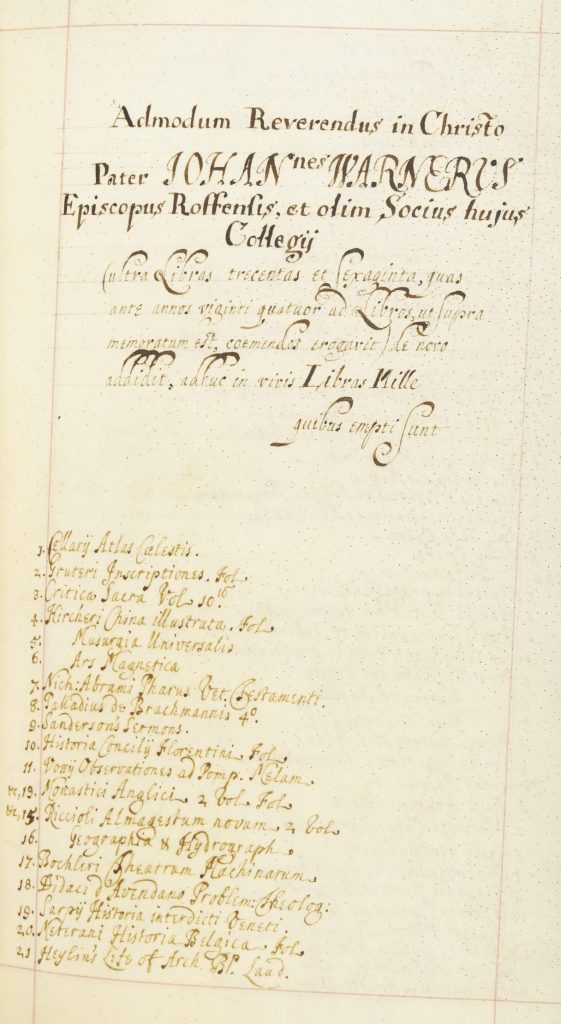 Admodum Reverendus in Christo
Pater IOHANnes WARNERUS
Episcopus Roffensis, et olim Socius hujus
Collegij
(ultra Libras trecentas et sexaginta, quas
ante annos viginti quatuor ad Libros, ut supra
memoratum est, coemendos erogavit) de novo
addidit, adhuc in vivis Libras Mille
quibus empti sunt
1. Cellarij Atlas Cœlestis.
2. Gruteri Inscriptiones. Fol.
3. Critica Sacra Vol 10.
4. Kircheri China illustrata. Fol.
5. Musurgia Universalis
6. Ars Magnetica
7. Nich: Abrami Pharus Vet. Testamenti.
8. Palladius de Brachmannis 4o.
9. Sanderson's Sermons.
10. Historia Concilij Florentini Fol.
11. Vossij Observationes ad Pomp. Melam.
&c, 13. Monastici Anglici 2 Vol Fol
&c, 15. Riccioli Almagestum novum 2 Vol
16. Geographia & Hydrograph.
17. Bockleri Theatrum Machinarum
18. Didaci d'Avendano Problem: Theolog:
19. Sarpij Historia interdicti Veneti.
20. Meterani Historia Belgica Fol
21 Heylin's Life of Arch. Bp. Laud.